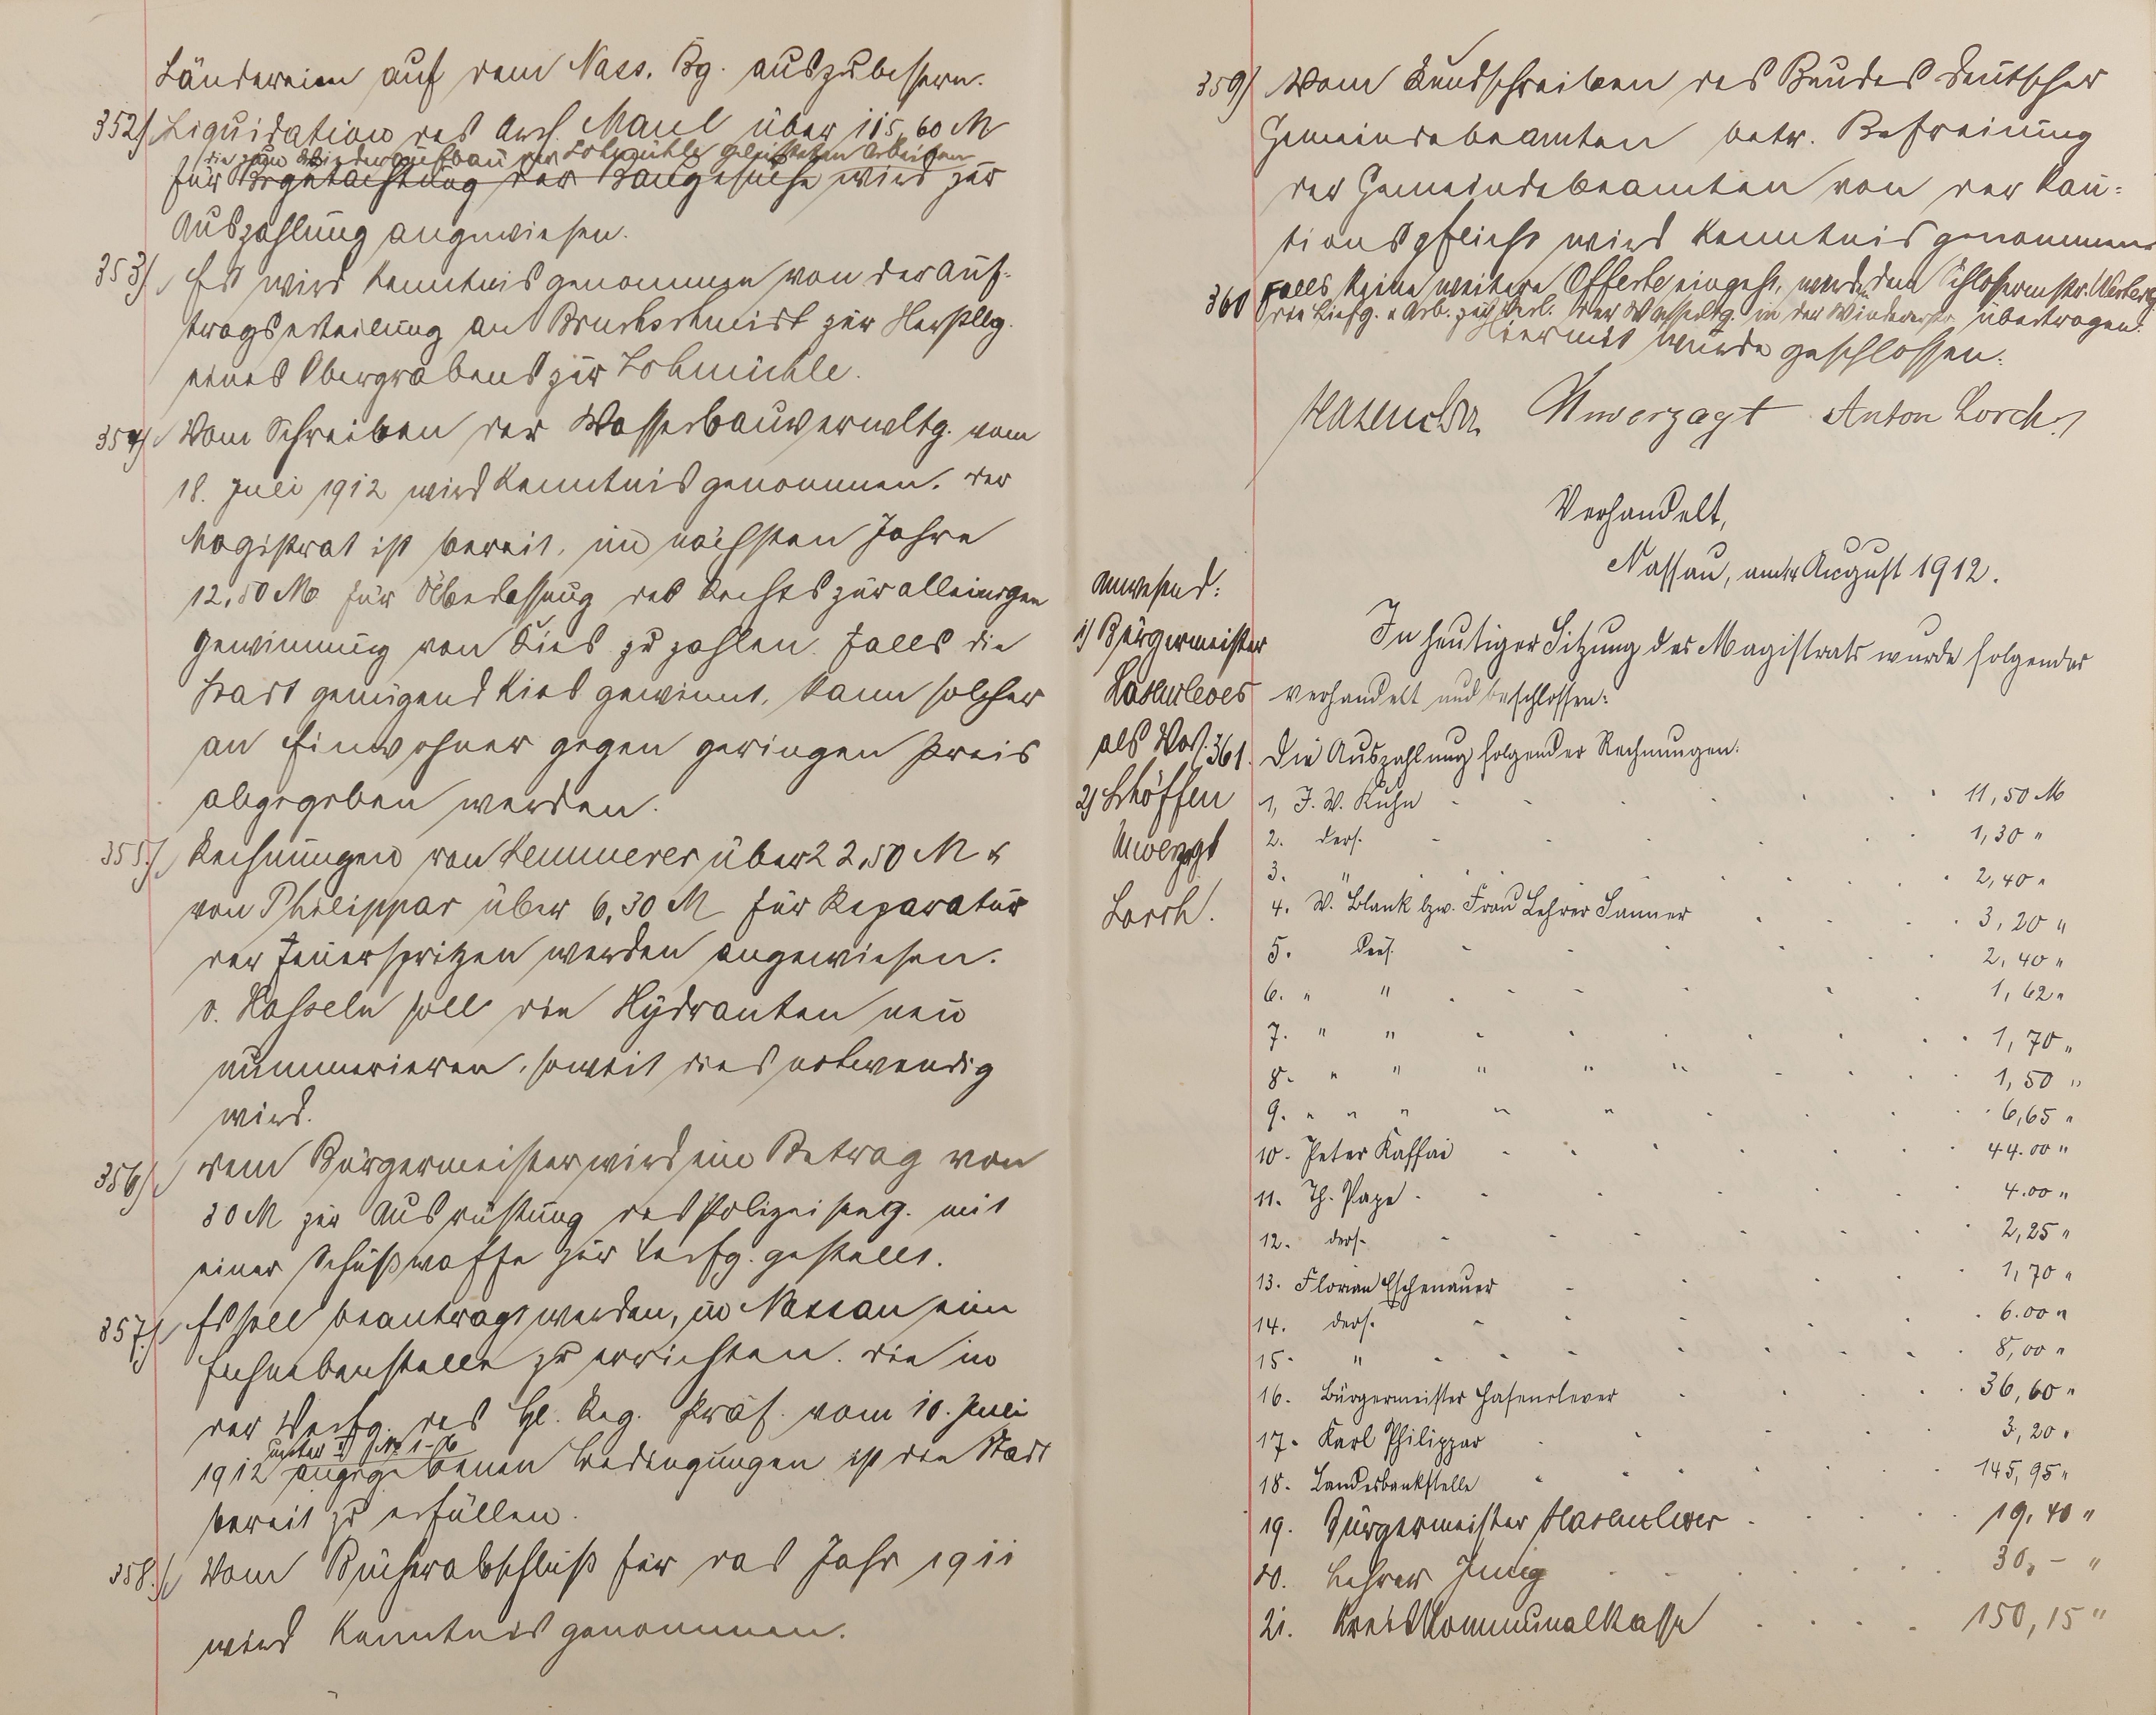 Ländereien auf dem Nass. Bg. auszubessern.
352) Liquidation des Arch. Maul über 115,60 M
die zum Wiederaufbau der Lohmühle geleisteten Arbeiten
für Begutachtung der Baugesuche wird zur
Auszahlung angewiesen.
353) Es wird Kenntnis genommen von der Auf-
tragserteilung an Bruchschmidt zur Herstllg.
eines Obergrabens zur Lohmühle.
354) Vom Schreiben der Wasserbauverwaltg. vom
18. Juli 1912 wird Kenntnis genommen. Der
Magistrat ist bereit, im nächsten Jahre
12,50 M für Überlassung des Rechts zur alleinigen
Gewinnung von Kies zu zahlen. Falls die
Stadt genügend Kies gewinnt, kann solcher
an Einwohner gegen geringen Preis
abgegeben werden.
355) Rechnungen von Kemmerer über 22,50 M &
von Philippar über 6,30 M für Reparatur
der Feuerspritzen werden angewiesen.
v. Kasseln soll die Hydranten neu
nummerieren, soweit dies notwendig
wird.
356) Dem Bürgermeister wird ein Betrag von
80 M zur Ausrüstung des Polizeiserg. mit
einer Schußwaffe zur Verfg. gestellt.
357) Es soll beantragt werden, in Nassau eine
Eichnebenstelle zu errichten. Die in
der Verfg. des H. Reg. Präs. vom 10. Juli
unter I No 1-6
1912 angegebenen Bedingungen ist die Stadt
bereit zu erfüllen.
358) Vom Bücherabschluß für das Jahr 1911
wird Kenntnis genommen.
359) Vom Rundschreiben des Bundes Deutscher
Gemeindebeamten betr. Befreiung
der Gemeindebeamten von der Kau-
tionspflicht wird Kenntnis genommen
360 Falls keine weitere Offerte eingeht, werden dem Schlossermstr.
die Liefg. & Arb. zur Verl. der Wasserltg. in der übertragen.
Hiermit wurde geschlossen.
Hasenclever Unverzagt Anton Lorch
Verhandelt,
Nassau, am 14 August 1912.
Anwesend:
1) Bürgermeister
Hasenclever
als Vors.
2) Schöffen
Unverzagt
Lorch.
In heutiger Sitzung des Magistrats wurde folgendes
verhandelt und beschlossen:
361. Die Auszahlung folgender Rechnungen.
1, J. W. Kuhn 11,50 M
2. ders. 1,30 "
3. " 2,40 "
4. W. Blank bzw. Frau Lehrer Sauner 3,20 "
5. ders. 2,40 "
6. " " 1,62 "
7. " " 1,70 "
8. " " " " " 1,50 "
9. " " " " " 6,65 "
10. Peter Kaffai 44.00 "
11. Th. Pape 4.00 "
12. ders. 2,25 "
13. Florian Eschenauer 1,70 "
14. ders. 6.00 "
15. " 8,00 "
16. Bürgermeister Hasenclever 36,60 "
17. Karl Philippar 3,20 "
18. Landesbankstelle 145,95 "
19. Bürgermeister Hasenclever 19,40 "
20. Lehrer Jung 30,- "
21. Kreiskommunalkasse 150,15 "